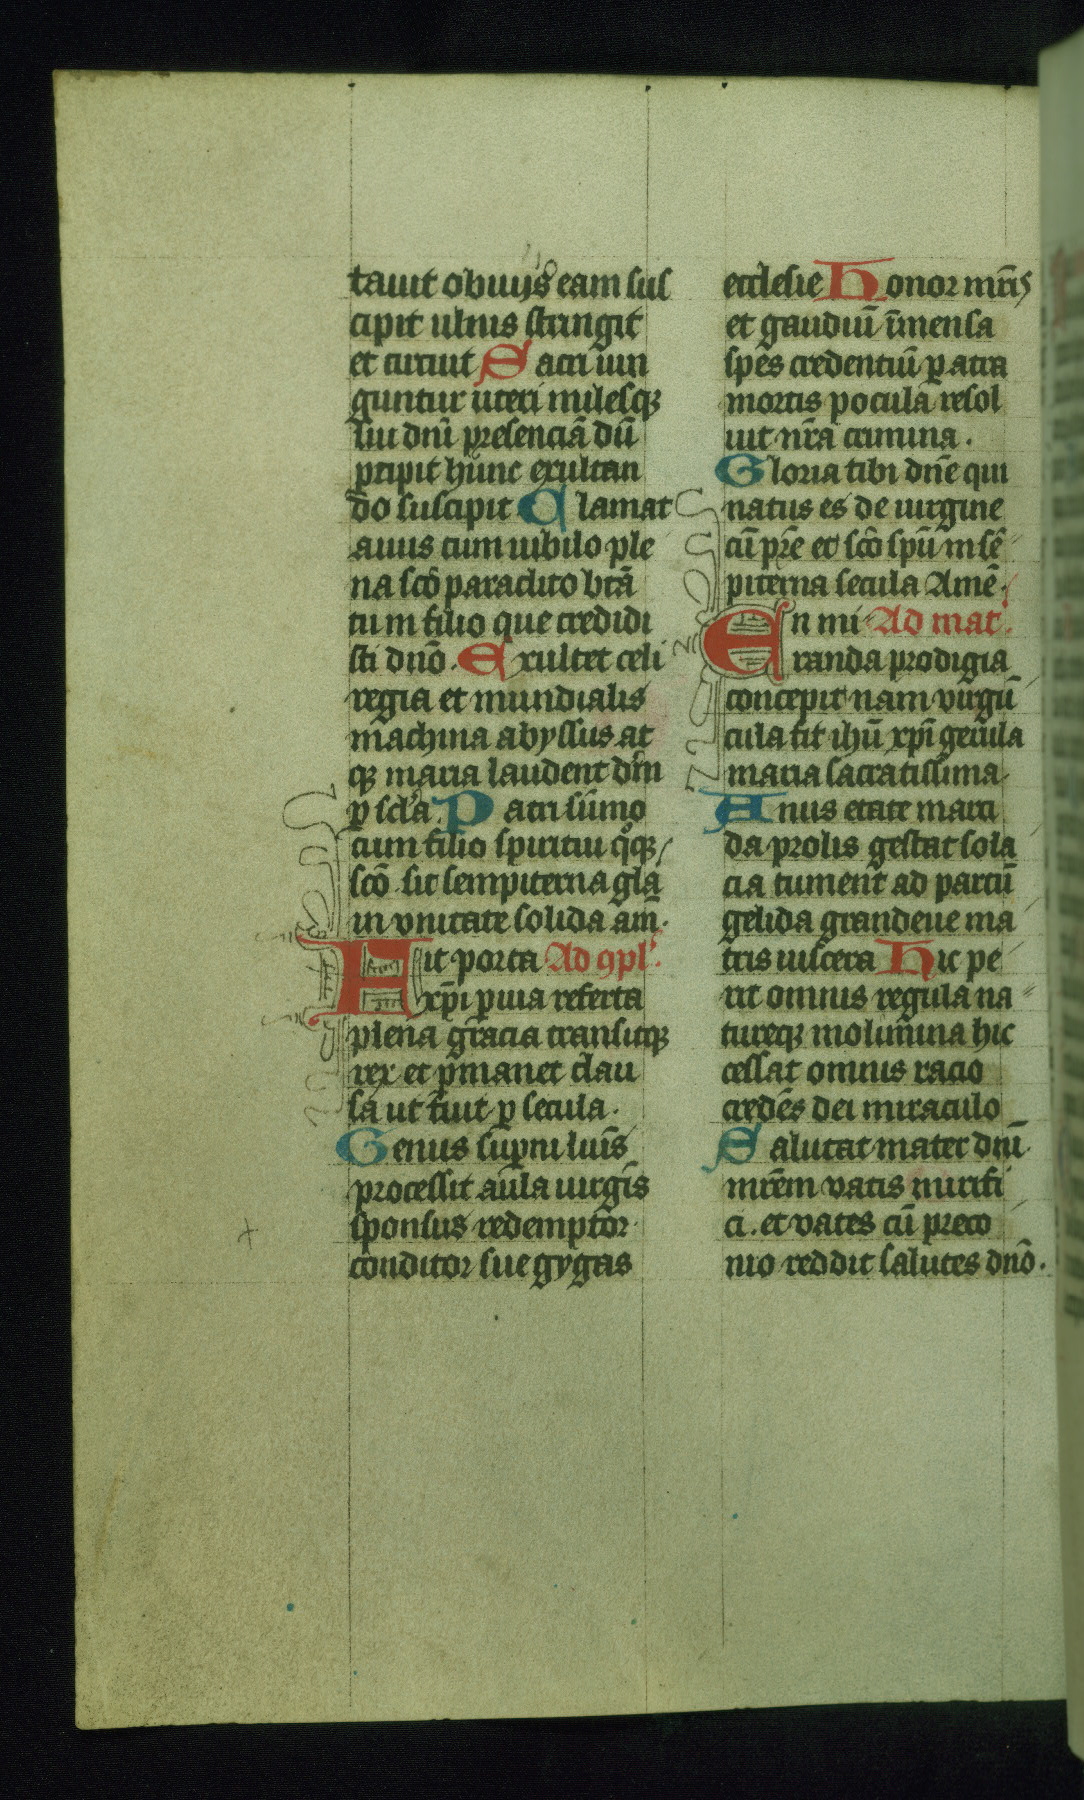 tauit obuijs eam sus
cipit ulnis stringit
et circuit Sacri iun
guntur uteri milesqꝫ
sui dnī presenciā dū
ꝑcipit hunc exultan
do suscipit Clamat
auus cum iubilo ple
na scō paraclito btā
tu in filio que credidi
sti dnō. Exultet celi
regia et mundialis
machina abyssus at
qꝫ maria laudent dnm̄
ꝑ scla. Patri sūmo
cum filio spiritui qͦqꝫ
scō sit sempiterna gla
in vnitate solida am̄.
Fit porta Ad ꝯpl'.
xpī ꝑuia referta
plena gr̄acia transitqꝫ
rex et ꝑmanet clau
sa ut fuit ꝑ secula.
Genus suꝑni luīs
processit aula uirgīs
sponsus redemptor
conditor sue gygas
ecclesie Honor mr̄is
et gaudiū īmensa
spes credentiū ꝑ atra
mortis pocula resol
uit nr̄a crimina.
Gloria tibi dnē qui
natus es de uirgine
cū pr̄e et scō spū in sē
piterna secula Amē.
En mi Ad mat'.
randa prodigia
concepit nam virgū
cula fit ihū xpī gerula
maria sacratissima.
Anus etate marci
da prolis gestat sola
cia tument ad partū
gelida grandeue ma
tris uiscera Hic pe
rit omnis regula na
tureqꝫ molimina hic
cessat omnis racio
credēs dei miraculo
Salutat mater dnī
mr̄em vatis mirifi
ci. et vates cū preco
nio reddit salutes dnō.